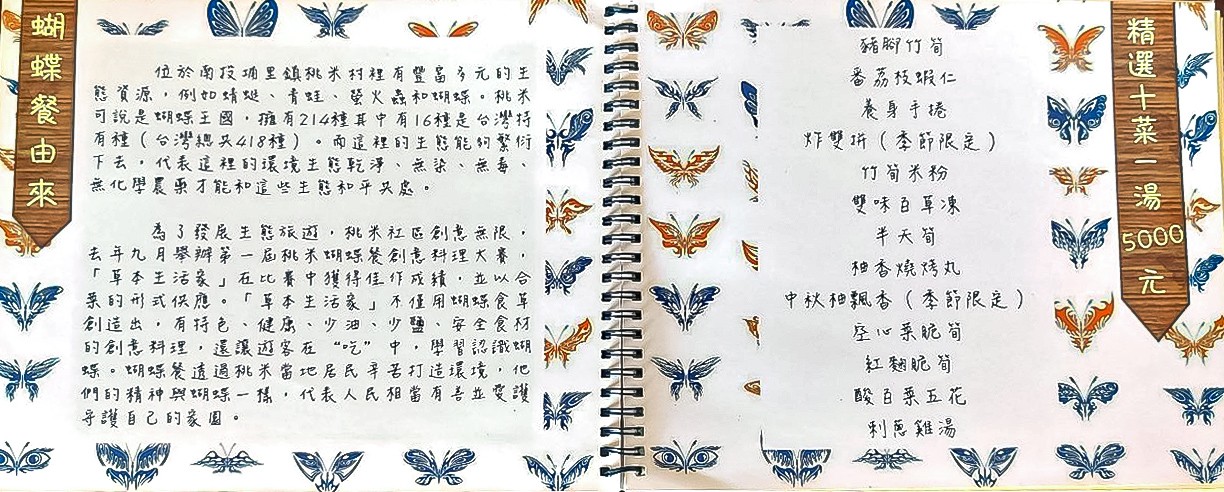 蝴蝶餐由來
位於南投埔里鎮桃米村裡有豐富多元的生
態資源，例如蜻蜓、青蛙、螢火蟲和蝴蝶。桃米
可說是蝴蝶王國，擁有214種其中有16種是台灣特
有種（台灣總共418種）。而這裡的生態能夠繁衍
下去，代表這裡的環境生態乾淨、無染、無毒、
無化學農藥才能和這些生態和平共處。
為了發展生態旅遊，桃米社區創意無限，
去年九月舉辦第一屆桃米蝴蝶餐創意料理大賽，
「草本生活家」在比賽中獲得佳作成績，並以合
菜的形式供應。「草本生活家」不僅用蝴蝶食草
創造出，有特色、健康、少油、少鹽、安全食材
的創意料理，還讓遊客在“吃”中，學習認識蝴
蝶。蝴蝶餐透過桃米當地居民辛苦打造環境，他
們的精神與蝴蝶一樣，代表人民相當有善並愛護
守護自己的家園。
精選十菜一湯5000元
豬腳竹筍
番荔枝蝦仁
養身手捲
炸雙拼（季節限定）
竹筍米粉
雙味百草凍
半天筍
柚香燒烤丸
中秋柚飄香（季節限定）
空心菜脆筍
紅麴脆筍
酸白菜五花
刺蔥雞湯